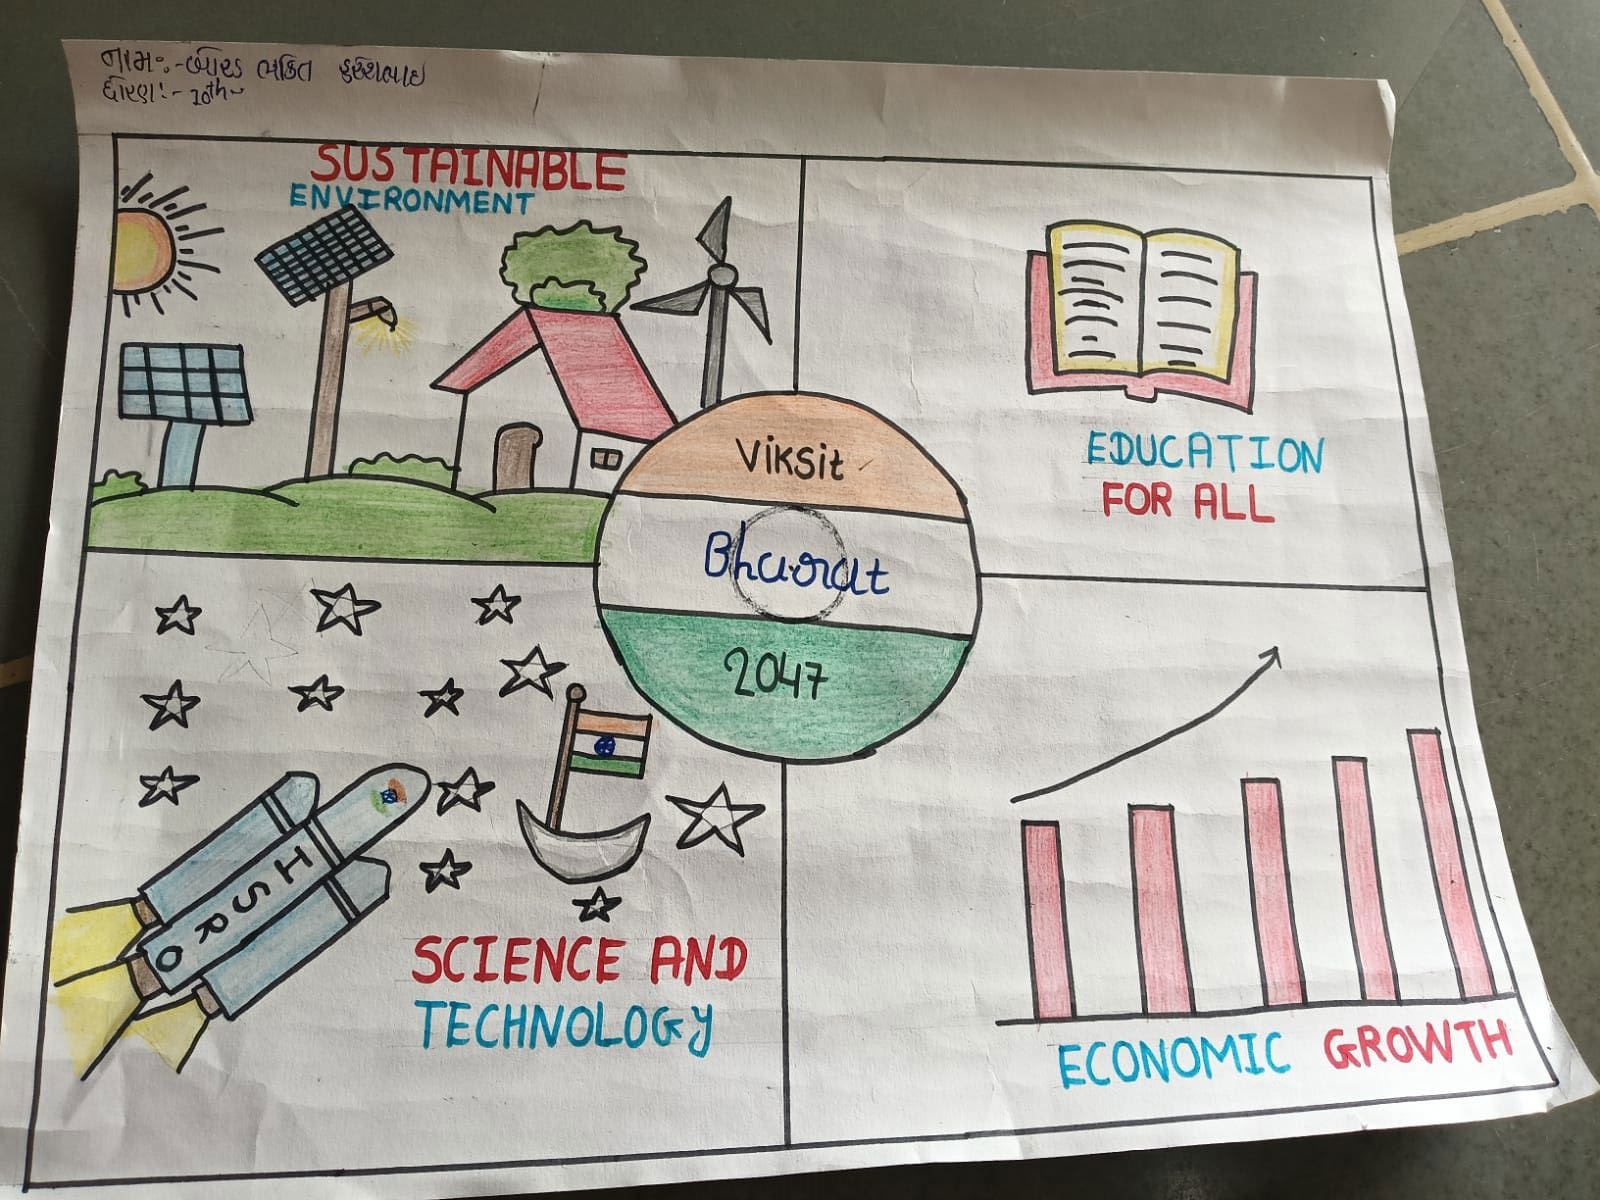 નામઃ-બોરડ ભકિત હરેશભાઇ
ધોરણઃ- 10th-
SUSTAINABLE
ENVIRONMENT
EDUCATION
FOR ALL
Viksit
Bharat
2047
ISRO
SCIENCE AND
TECHNOLOGY
ECONOMIC GROWTH